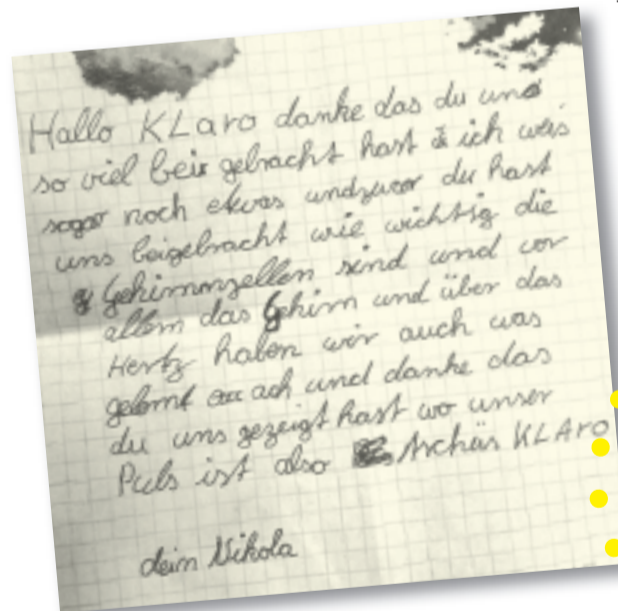 Hallo KLaro danke das du uns
so viel bei gebracht hast ich weis
sogar noch etwas undzwar du hast
uns beigebracht wie wichtig die
Gehirnnzellen sind und vor
allem das Gehirn und über das
Hertz haben wir auch was
gelernt ach und danke das
du uns gezeigt hast wo unser
Puls ist also Tschüs KLAro
dein Nikola